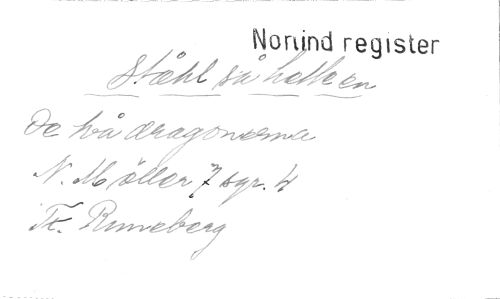 Norlind register
Ståhl så hette en
De två dragonerna
N. Möller 7 syr. 4
Tt. Runeberg